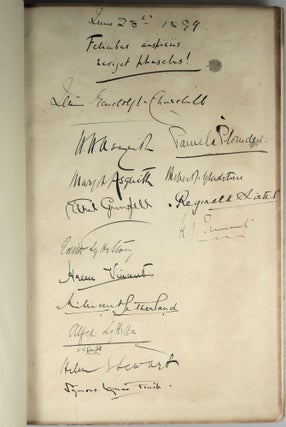 June 28th 1899.
Felicibus auspiciis
naviget phaselus!
Randolph Churchill
HHAsquith Pamela Plowden.
Margot Asquith Herbert J Gladstone
Ettie Grenfell Reginald Lister
H. J. Tennant
Lyttelton
Vincent
Millicent Sutherland
Alfred Lyttelton
Helen Stewart